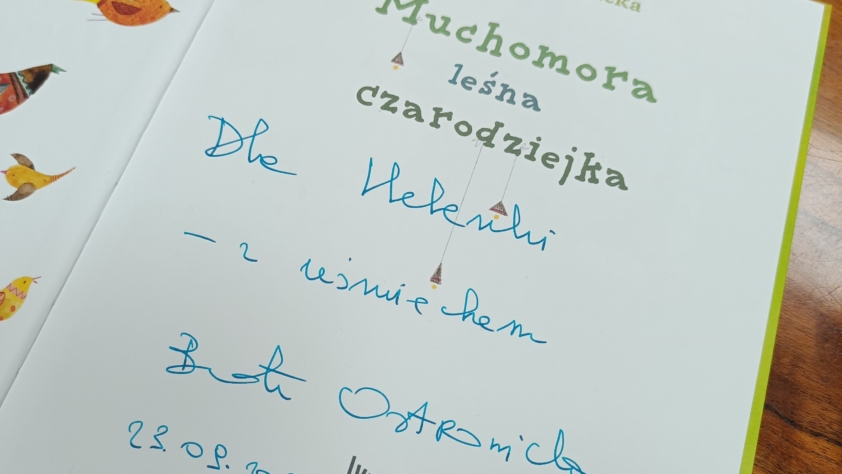 Muchomora
leśna
czarodziejka
Dla Helenki
– z uśmiechem
Beata Ostrowicka
23.09.